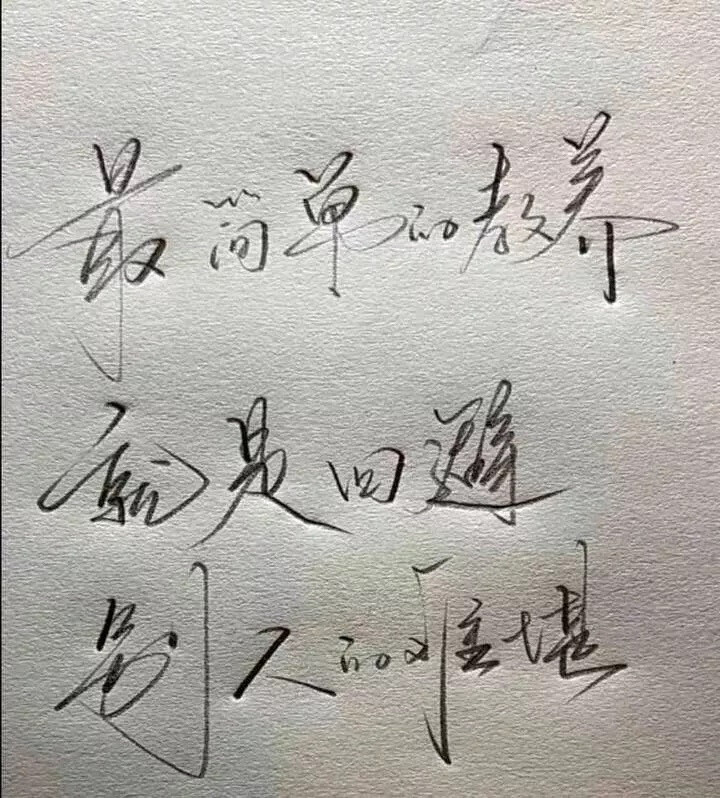 最简单的教养
就是回避
别人的难堪